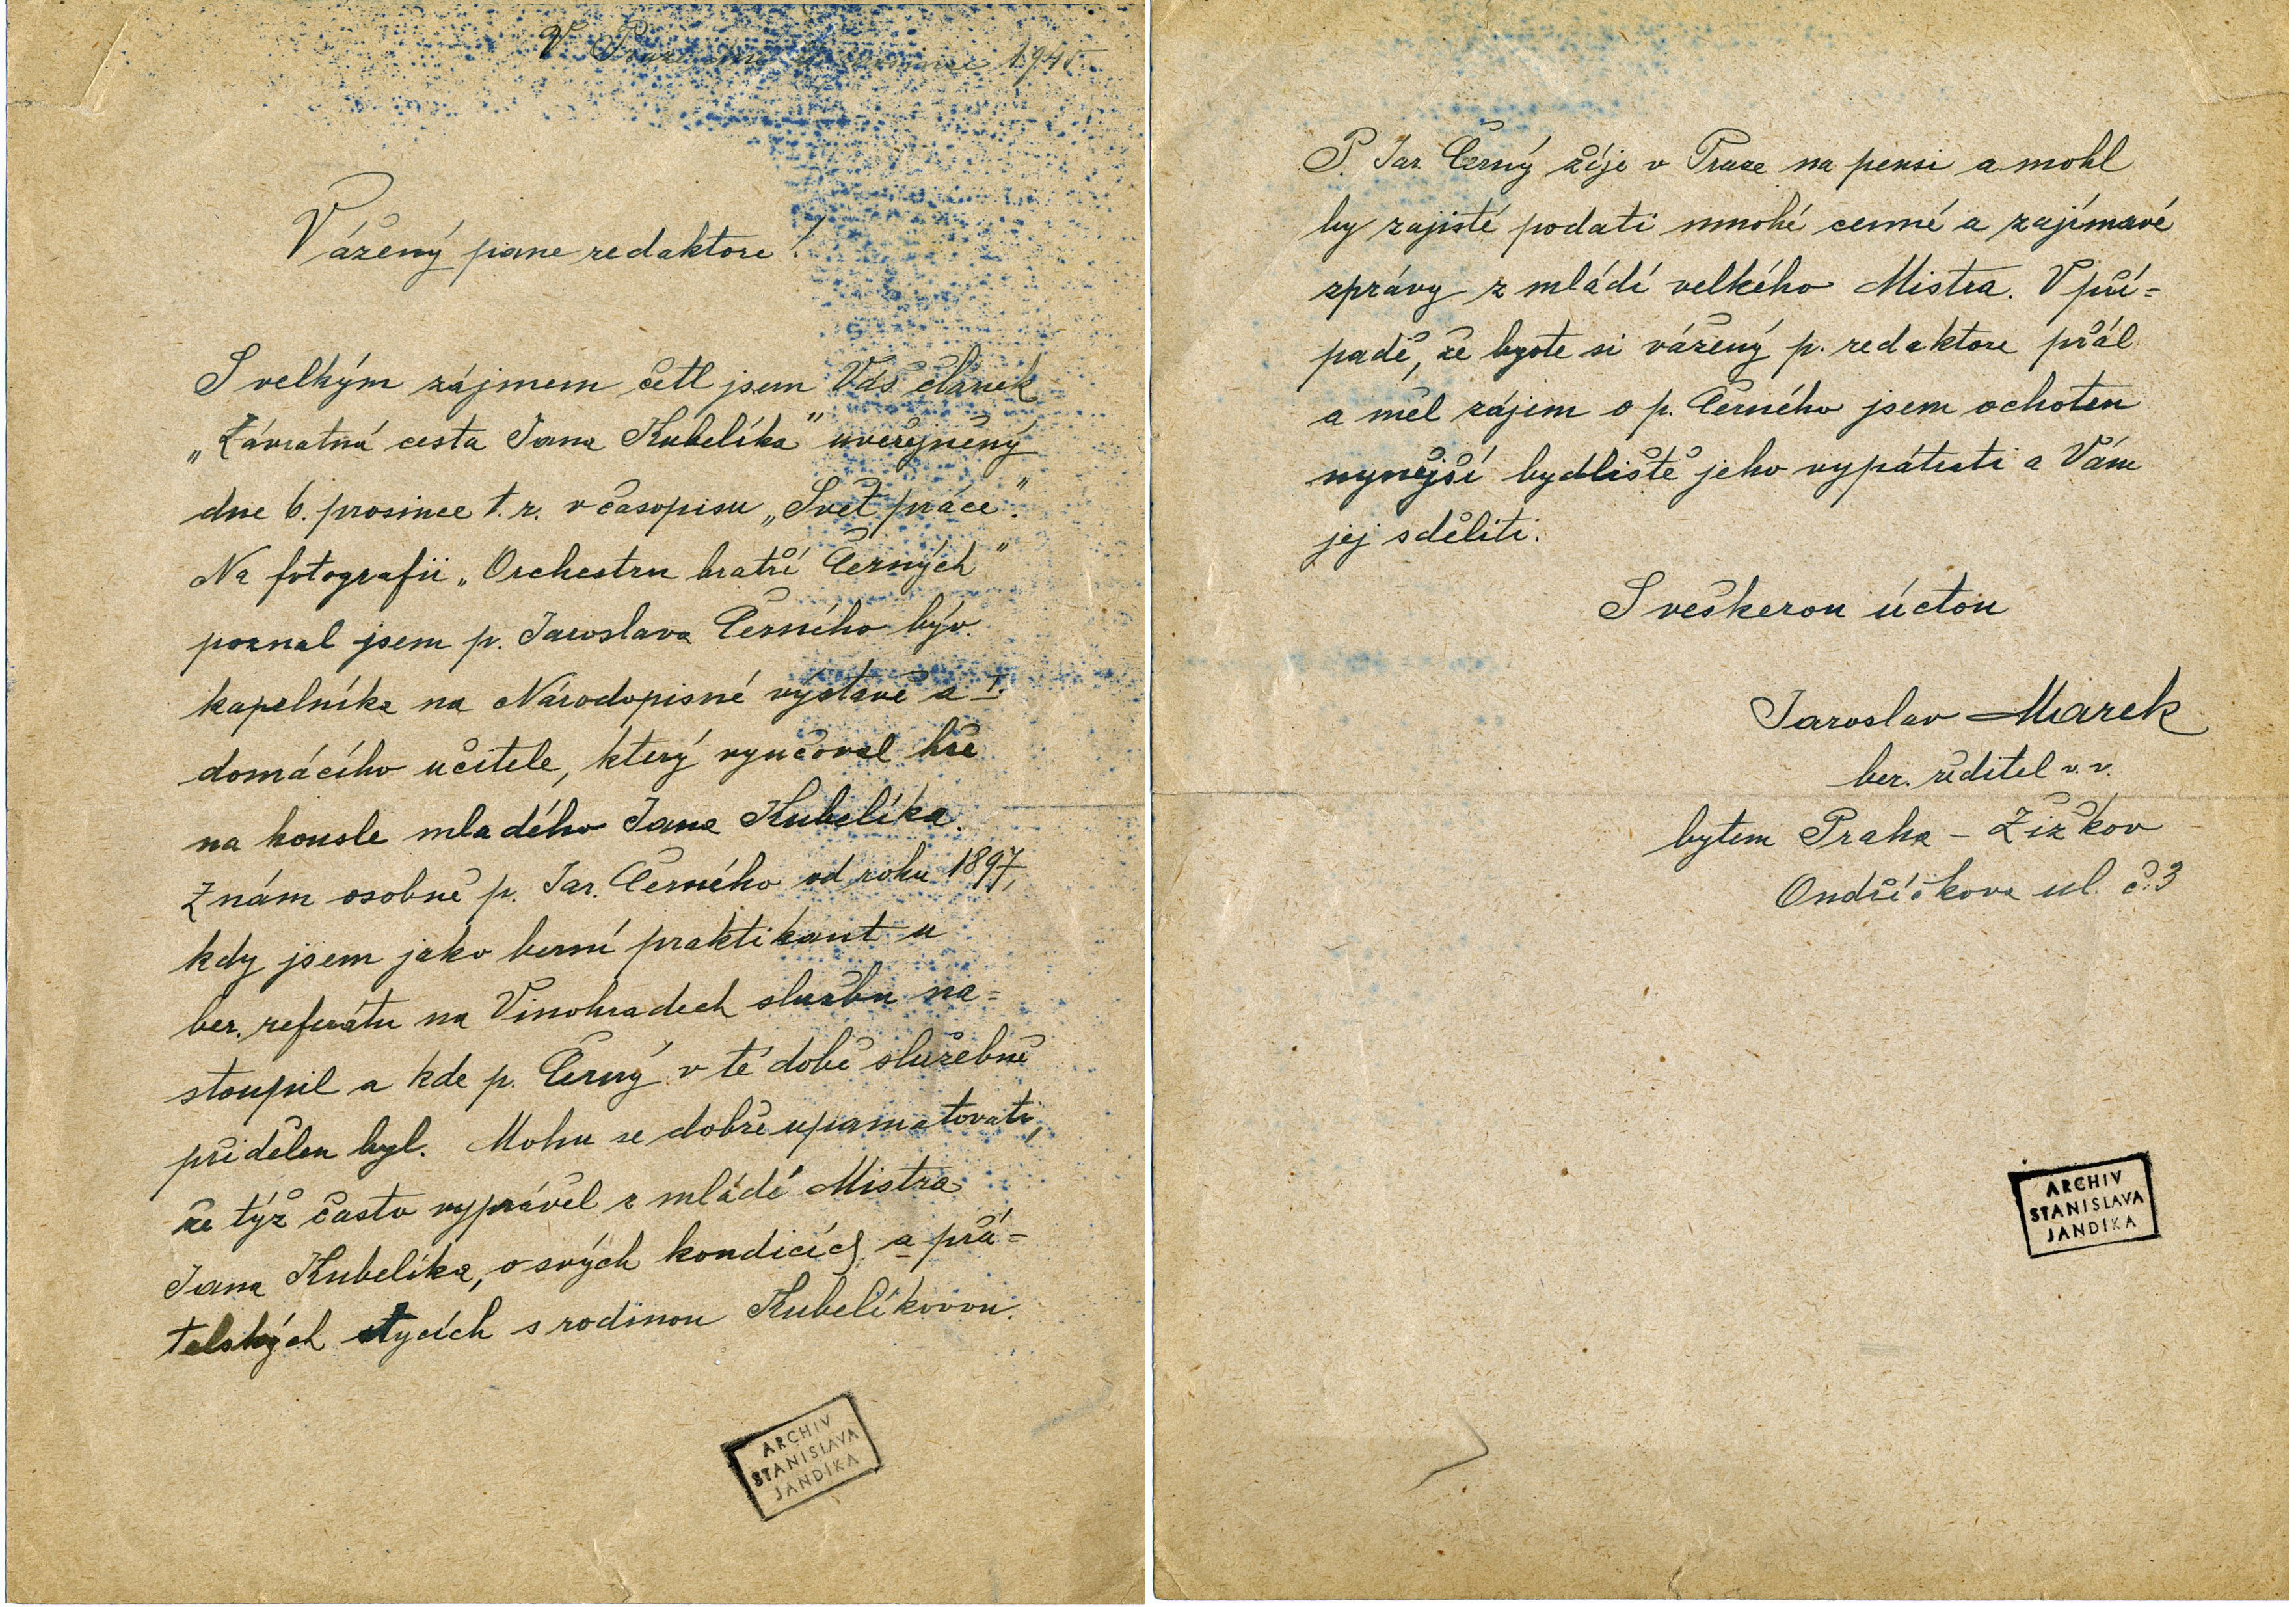 V Praze dne prosince 1945.
Vážený pane redaktore!
S velkým zájmem četl jsem Váš článek
„Závratná cesta Jana Kubelíka" uveřejněný
dne 6. prosince t. r. v časopisu „Svět práce".
Na fotografii „Orchestru bratří Černých"
poznal jsem p. Jaroslava Černého býv.
kapelníka na Národopisné výstavě a I.
domácího učitele, který vyučoval hře
na housle mladého Jana Kubelíka.
Znám osobně p. Jar. Černého od roku 1897,
kdy jsem jako berní praktikant u
ber. referátu na Vinohradech službu na=
stoupil a kde p. Černý v té době služebně
přidělen byl. Mohu se dobře upamatovati,
že týž často vyprávěl z mládí Mistra
Jana Kubelíka, o svých kondicích a přá=
telských stycích s rodinou Kubelíkovou.
ARCHIV
STANISLAVA
JANDÍKA
P. Jar. Černý žije v Praze na pensi a mohl
by zajisté podati mnohé cenné a zajímavé
zprávy z mládí velkého Mistra. V pří=
padě, že byste si vážený p. redaktore přál
a měl zájem o p. Černého jsem ochoten
nynější bydliště jeho vypátrati a Vám
jej sděliti.
S veškerou úctou
Jaroslav Marek
ber. ředitel v. v.
bytem Praha – Žižkov
Ondříčkova ul. č. 3
ARCHIV
STANISLAVA
JANDÍKA